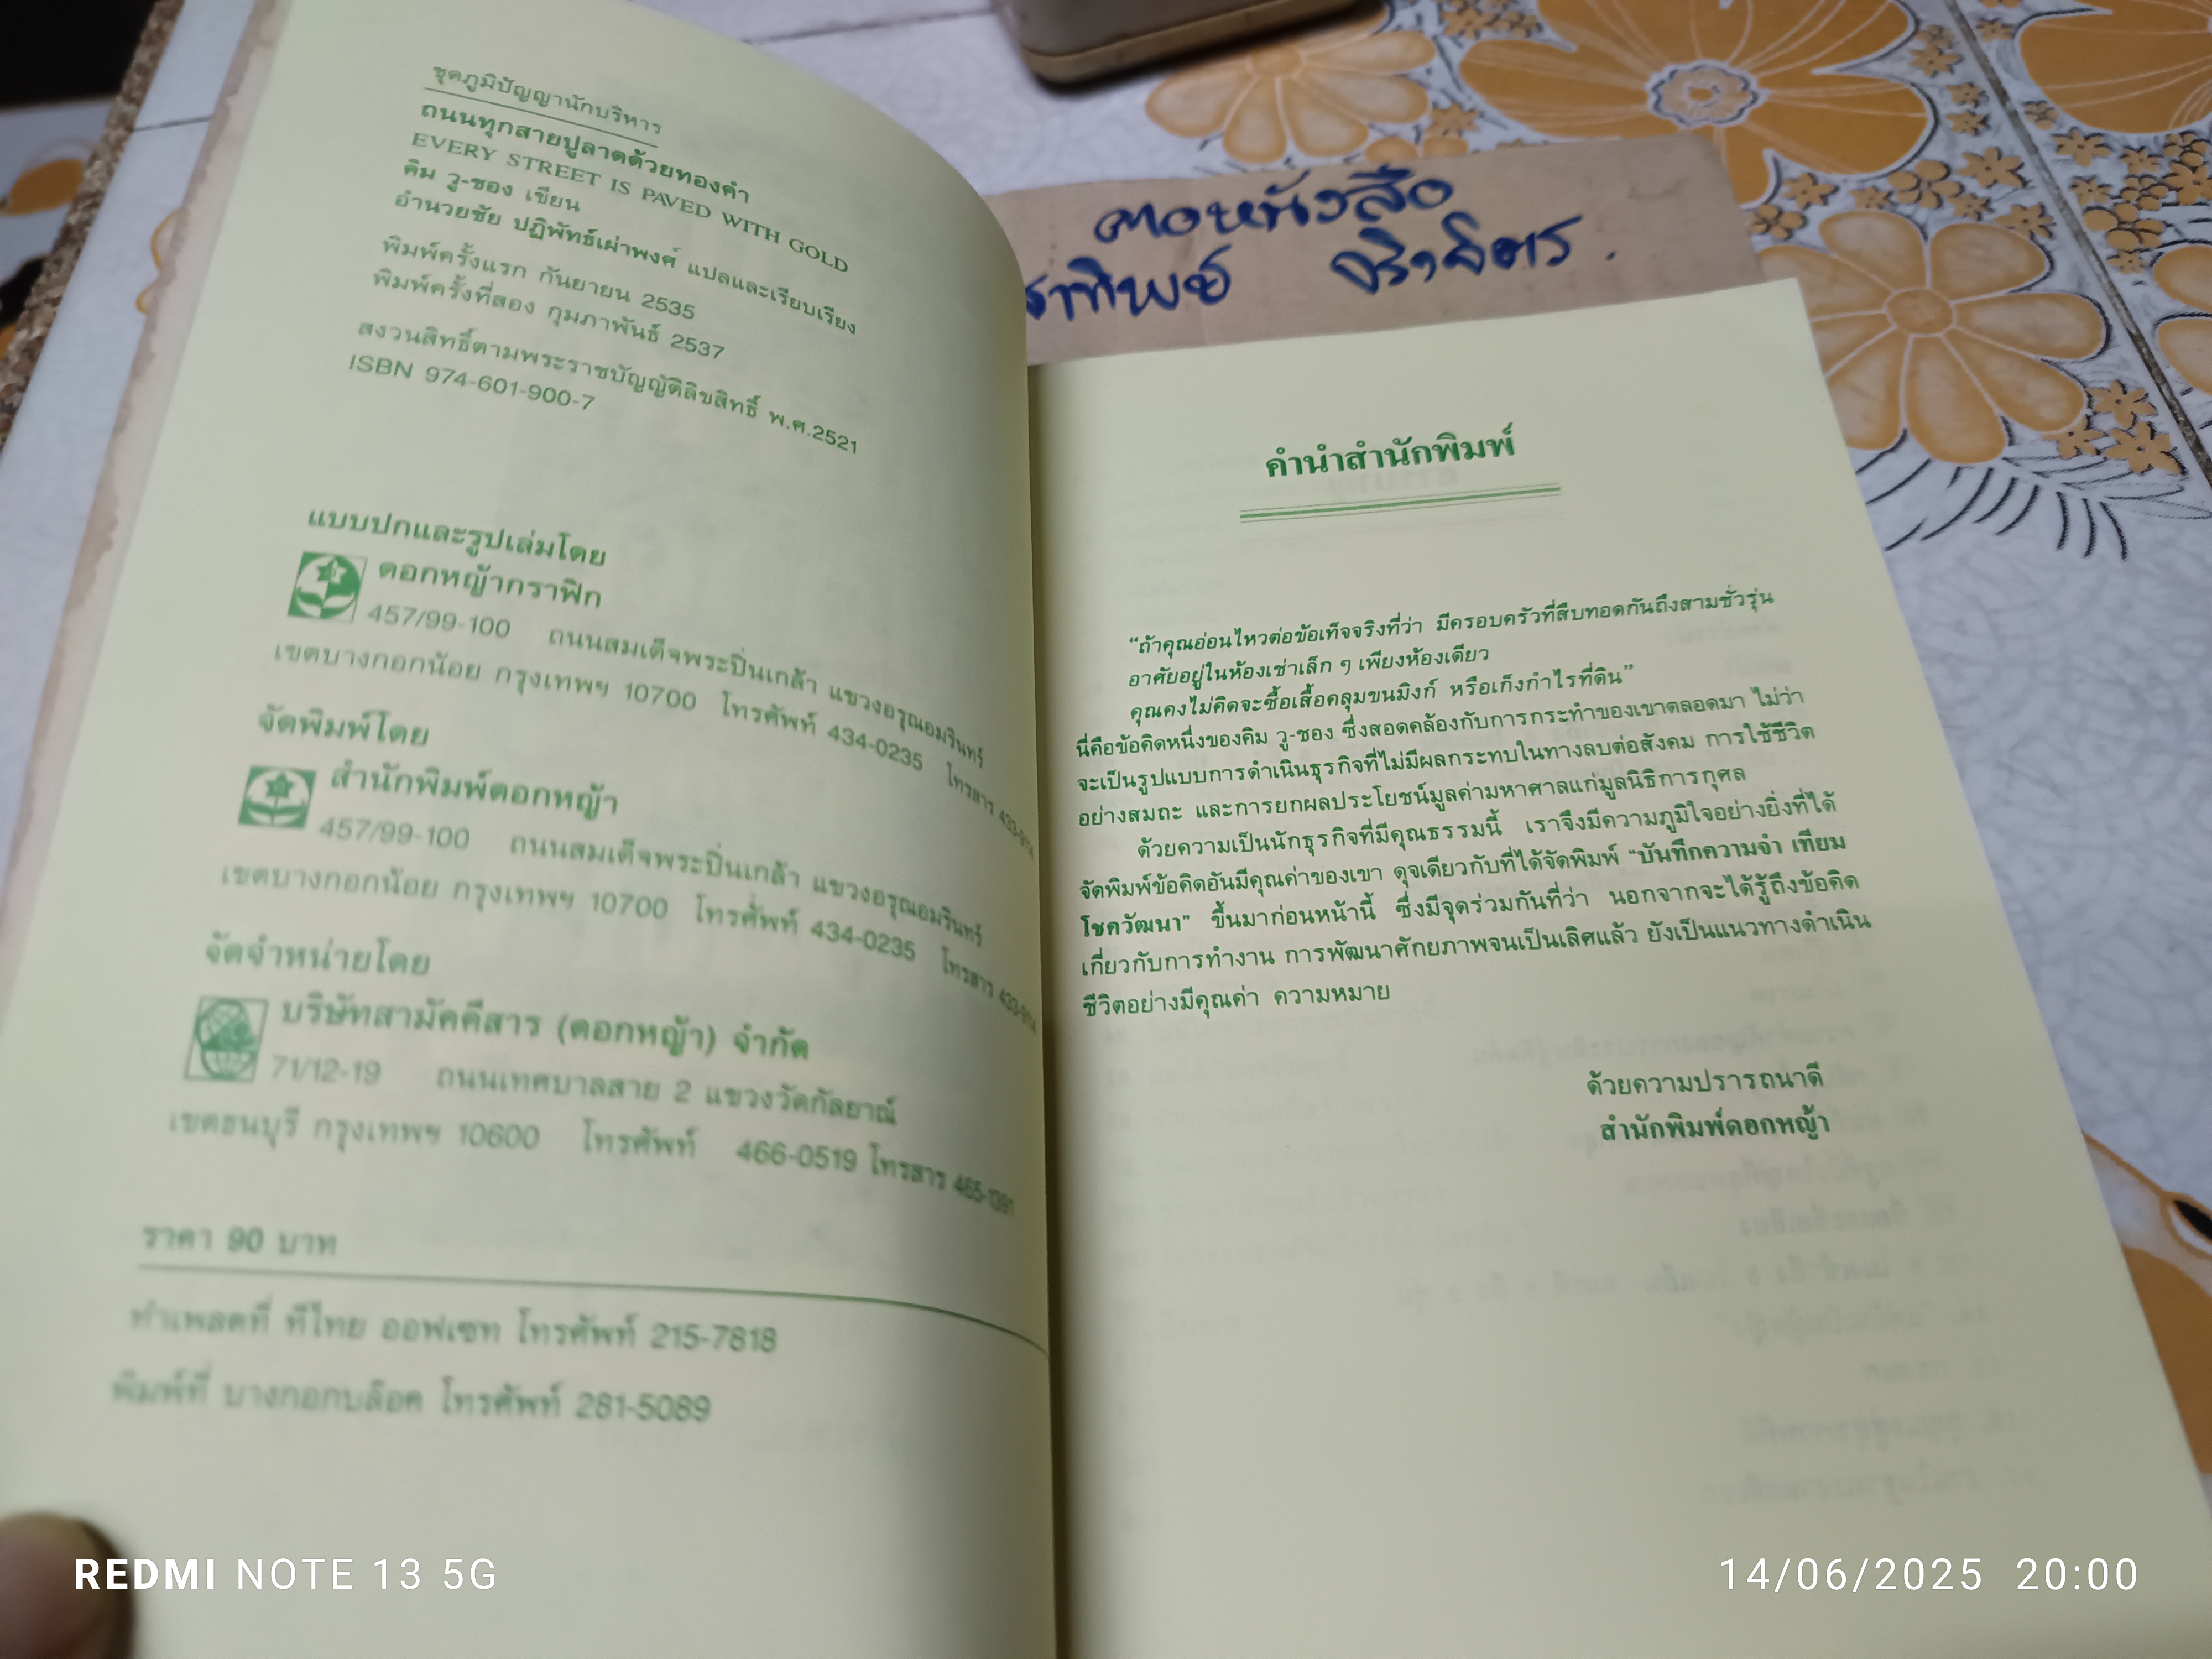 ชุดภูมิปัญญานักบริหาร
ถนนทุกสายปูลาดด้วยทองคำ
EVERY STREET IS PAVED WITH GOLD
คิม วู-ชอง เขียน
อำนวยชัย ปฏิพัทธ์เผ่าพงศ์ แปลและเรียบเรียง
พิมพ์ครั้งแรก กันยายน 2535
พิมพ์ครั้งที่สอง กุมภาพันธ์ 2537
สงวนสิทธิ์ตามพระราชบัญญัติลิขสิทธิ์ พ.ศ.2521
ISBN 974-601-900-7
แบบปกและรูปเล่มโดย
ดอกหญ้ากราฟิก
457/99-100 ถนนสมเด็จพระปิ่นเกล้า แขวงอรุณอมรินทร์
เขตบางกอกน้อย กรุงเทพฯ 10700 โทรศัพท์ 434-0235 โทรสาร
จัดพิมพ์โดย
สำนักพิมพ์ดอกหญ้า
457/99-100 ถนนสมเด็จพระปิ่นเกล้า แขวงอรุณอมรินทร์
เขตบางกอกน้อย กรุงเทพฯ 10700 โทรศัพท์ 434-0235 โทรสาร
จัดจำหน่ายโดย
บริษัทสามัคคีสาร (ดอกหญ้า) จำกัด
71/12-19 ถนนเทศบาลสาย 2 แขวงวัดกัลยาณ์
เขตธนบุรี กรุงเทพฯ 10600 โทรศัพท์ 466-0519 โทรสาร 465-1391
ราคา 90 บาท
ทำเพลตที่ ทีไทย ออฟเซท โทรศัพท์ 215-7818
พิมพ์ที่ บางกอกบล็อค โทรศัพท์ 281-5089
หนังสือ
คำนำสำนักพิมพ์
“ถ้าคุณอ่อนไหวต่อข้อเท็จจริงที่ว่า มีครอบครัวที่สืบทอดกันถึงสามชั่วรุ่น
อาศัยอยู่ในห้องเช่าเล็ก ๆ เพียงห้องเดียว
คุณคงไม่คิดจะซื้อเสื้อคลุมขนมิงก์ หรือเก็งกำไรที่ดิน”
นี่คือข้อคิดหนึ่งของคิม วู-ชอง ซึ่งสอดคล้องกับการกระทำของเขาตลอดมา ไม่ว่า
จะเป็นรูปแบบการดำเนินธุรกิจที่ไม่มีผลกระทบในทางลบต่อสังคม การใช้ชีวิต
อย่างสมถะ และการยกผลประโยชน์มูลค่ามหาศาลแก่มูลนิธิการกุศล
ด้วยความเป็นนักธุรกิจที่มีคุณธรรมนี้ เราจึงมีความภูมิใจอย่างยิ่งที่ได้
จัดพิมพ์ข้อคิดอันมีคุณค่าของเขา ดุจเดียวกับที่ได้จัดพิมพ์ “บันทึกความจำ เทียม
โชควัฒนา” ขึ้นมาก่อนหน้านี้ ซึ่งมีจุดร่วมกันที่ว่า นอกจากจะได้รู้ถึงข้อคิด
เกี่ยวกับการทำงาน การพัฒนาศักยภาพจนเป็นเลิศแล้ว ยังเป็นแนวทางดำเนิน
ชีวิตอย่างมีคุณค่า ความหมาย
ด้วยความปรารถนาดี
สำนักพิมพ์ดอกหญ้า
REDMI NOTE 13 5G
14/06/2025 20:00